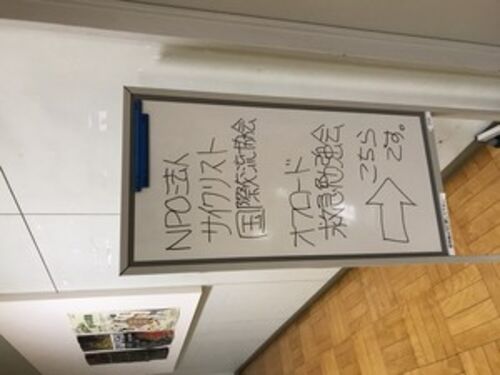 NPO法人
サイクリスト
国際交流協会
オフロード
救急勉強会
こちら
です。